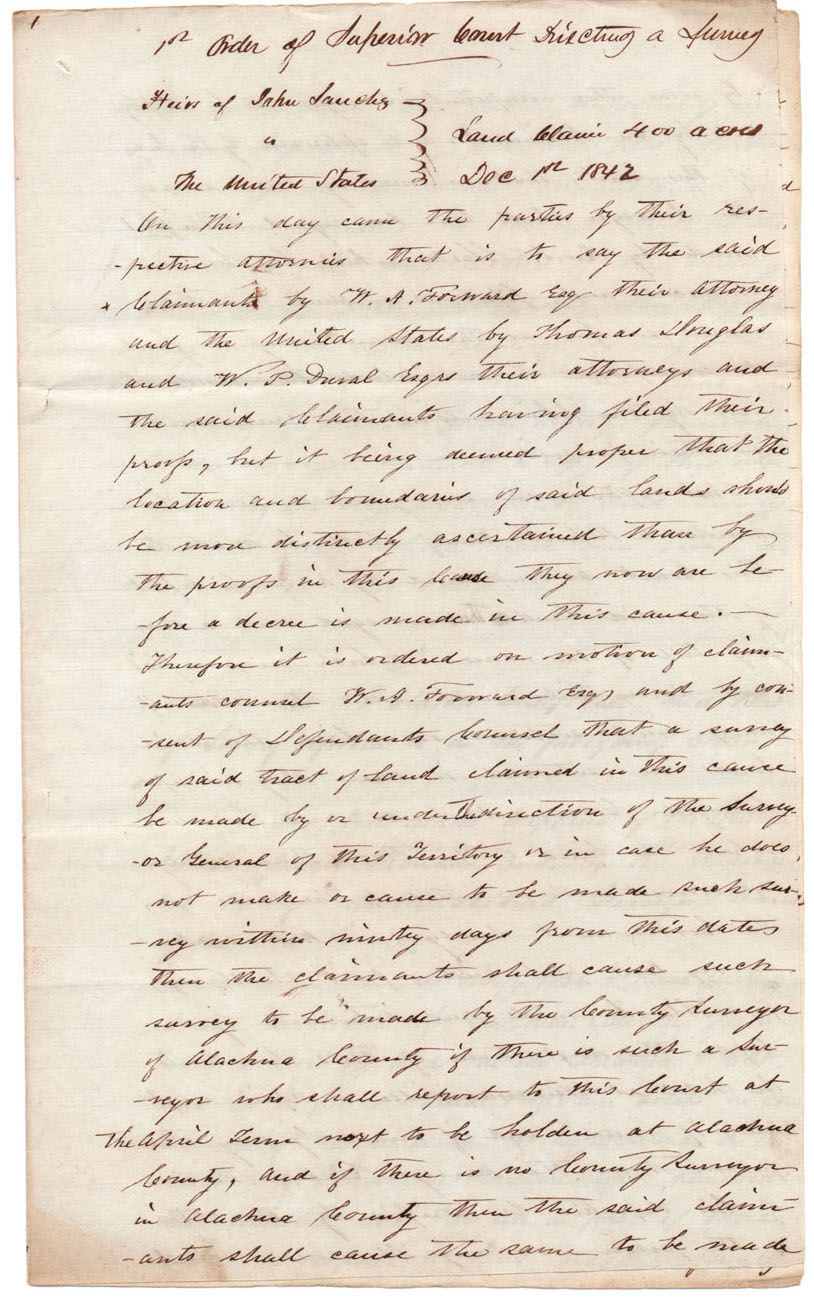 1
1st Order of Superior Court Directing a Survey
Heirs of John Sanchez
vs
Land Claim 400 acres
The United States
Dec 1st 1842
On this day came the parties by their res-
-pective attornies that is to say the said
Claimants by W. A. Forward Esq their attorney
and the United States by Thomas Douglas
and W. P. Duval Esqrs their attorneys and
the said Claimants having filed their
proofs, but it being deemed proper that the
location and boundaries of said lands should
be more distinctly ascertained than by
the proofs in this cause they now are be
-fore a decree is made in this cause. —
Therefore it is ordered on motion of claim-
-ants counsel W. A. Forward Esqr and by con-
-sent of Defendants Counsel that a survey
of said tract of land claimed in this cause
be made by or under the direction of the Survey-
-or General of this Territory or in case he does
not make or cause to be made such sur-
-vey within ninty days from this date
then the claimants shall cause such
survey to be made by the County Surveyor
of Alachua County if there is such a Sur-
-veyor who shall report to this Court at
the April Term next to be holden at Alachua
County, and if there is no County Surveyor
in Alachua County then the said claim-
-ants shall cause the same to be made